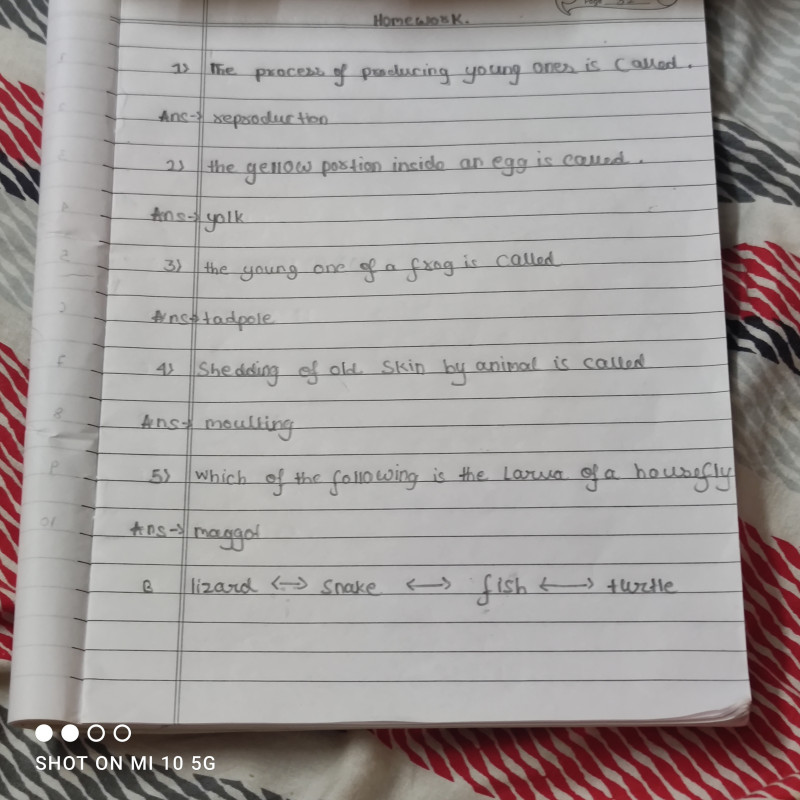 Homework.
1) The process of producing young ones is called.
Ans→ reproduction
2) the yellow portion inside an egg is called.
Ans→ yolk
3) the young one of a frog is called
Ans→ tadpole
4) Shedding of old skin by animal is called
Ans→ moulting
5) which of the following is the larva of a housefly
Ans→ maggot
B lizard ↔ snake ↔ fish ↔ turtle
SHOT ON MI 10 5G